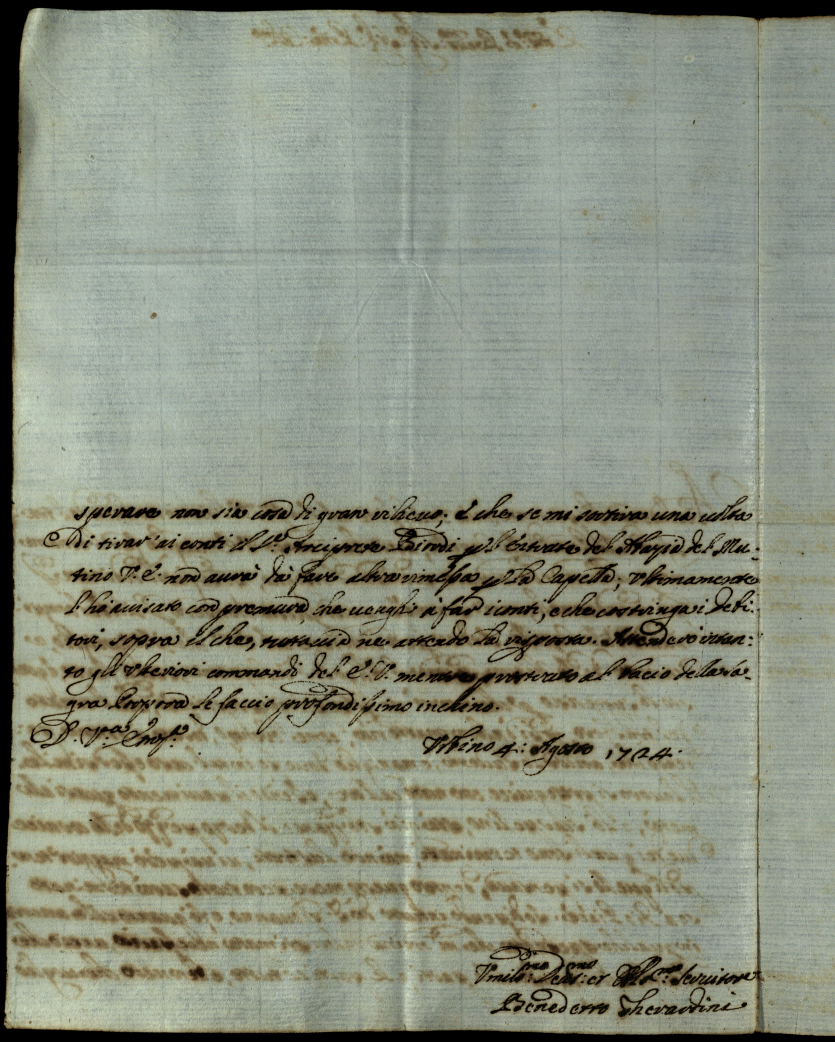 sperare non sia cosa di gran rilievo; e che se mi sortiva una volta
di tirar' ai conti il S.r Arciprete Biondi p l' Entrate del Abazia del Mu-
tino V. E. non aurà da fare altra rimessa p la Capella; Vltimamente
l' ho auisato con premura, che uenghi à far i conti, e che costringa i debi-
tori, sopra il che, tuttauia ne attendo la risposta. Attenderò intan-
to gli vlteriori commandi del E. V. mentre prostrato al bacio della Sa-
gra Porpora le faccio profondissimo inchino.
D. V.ra Em.
Vrbino 4: Agosto 1724.
Vmil:mo Deu:mo et Obl.mo Seruitore
Benedetto Gherardini